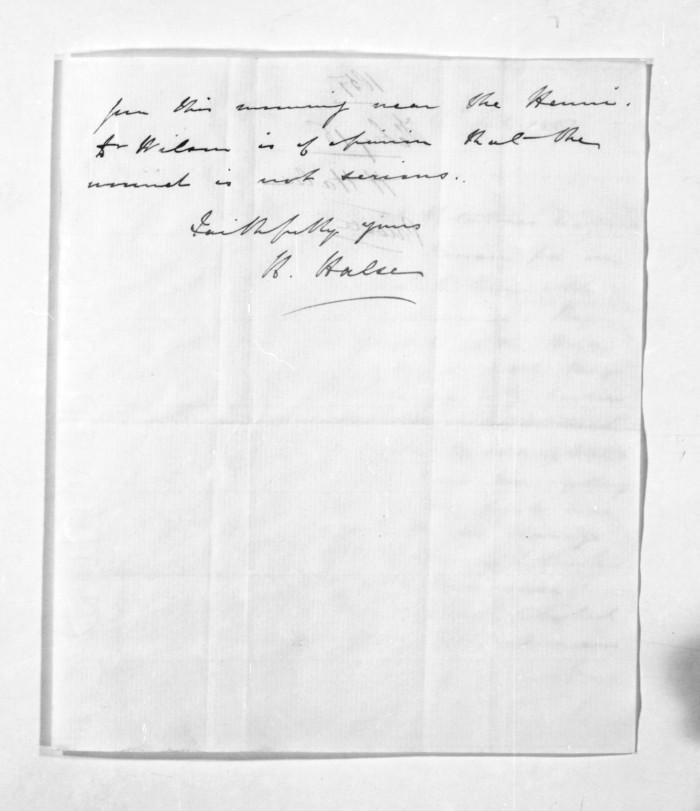 pa this morning near the Henui.
Dr Wilson is of opinion that the
wound is not serious.
Faithfully yours
H. Halse